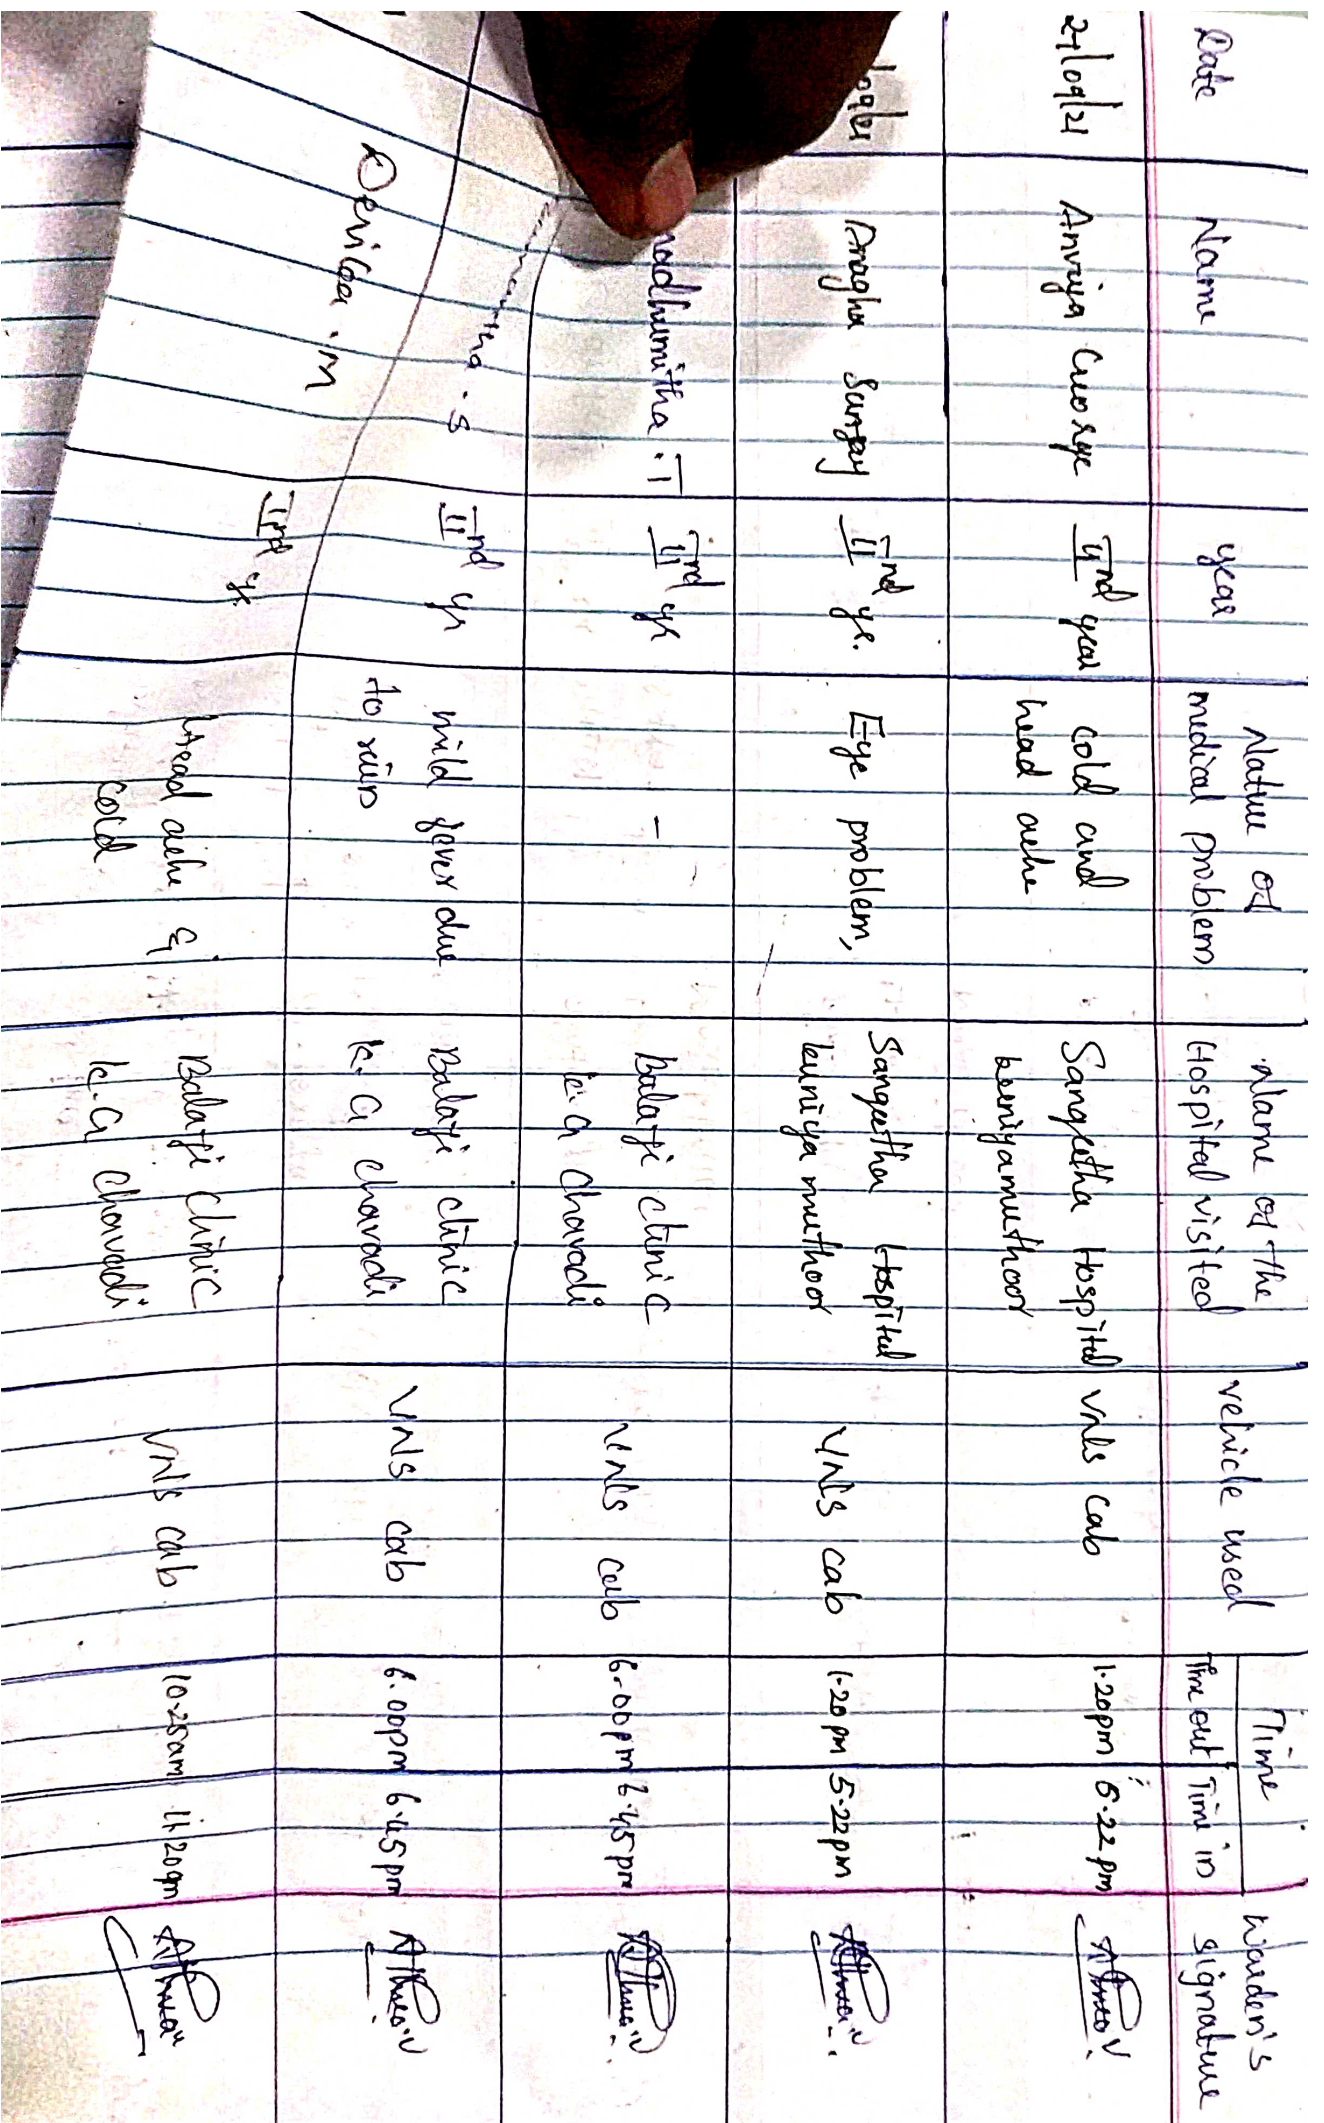 Date Name year Nature of medical problem Name of the Hospital visited vehicle used Time Time out Time in Warden's signature
27/09/21 Anriya George IInd year cold and head ache Sangeetha Hospital kuniyamuthoor VNLS cab 1.20pm 5.22 pm
/09/21 Anagha Sanjay IInd yr. Eye problem, Sangeetha Hospital kuniyamuthoor VNLS cab 1.20 pm 5.22pm
madhumitha .T IInd yr - Balaji clinic K.G chavadi VNLS cab 6.00pm 6.45pm
.S IInd yr mild fever due to rain Balaji clinic K.G chavadi VNLS cab 6.00pm 6.45pm
Devika .M IInd yr Head ache & cold Balaji clinic K.G chavadi VNLS cab 10.25am 11.20am